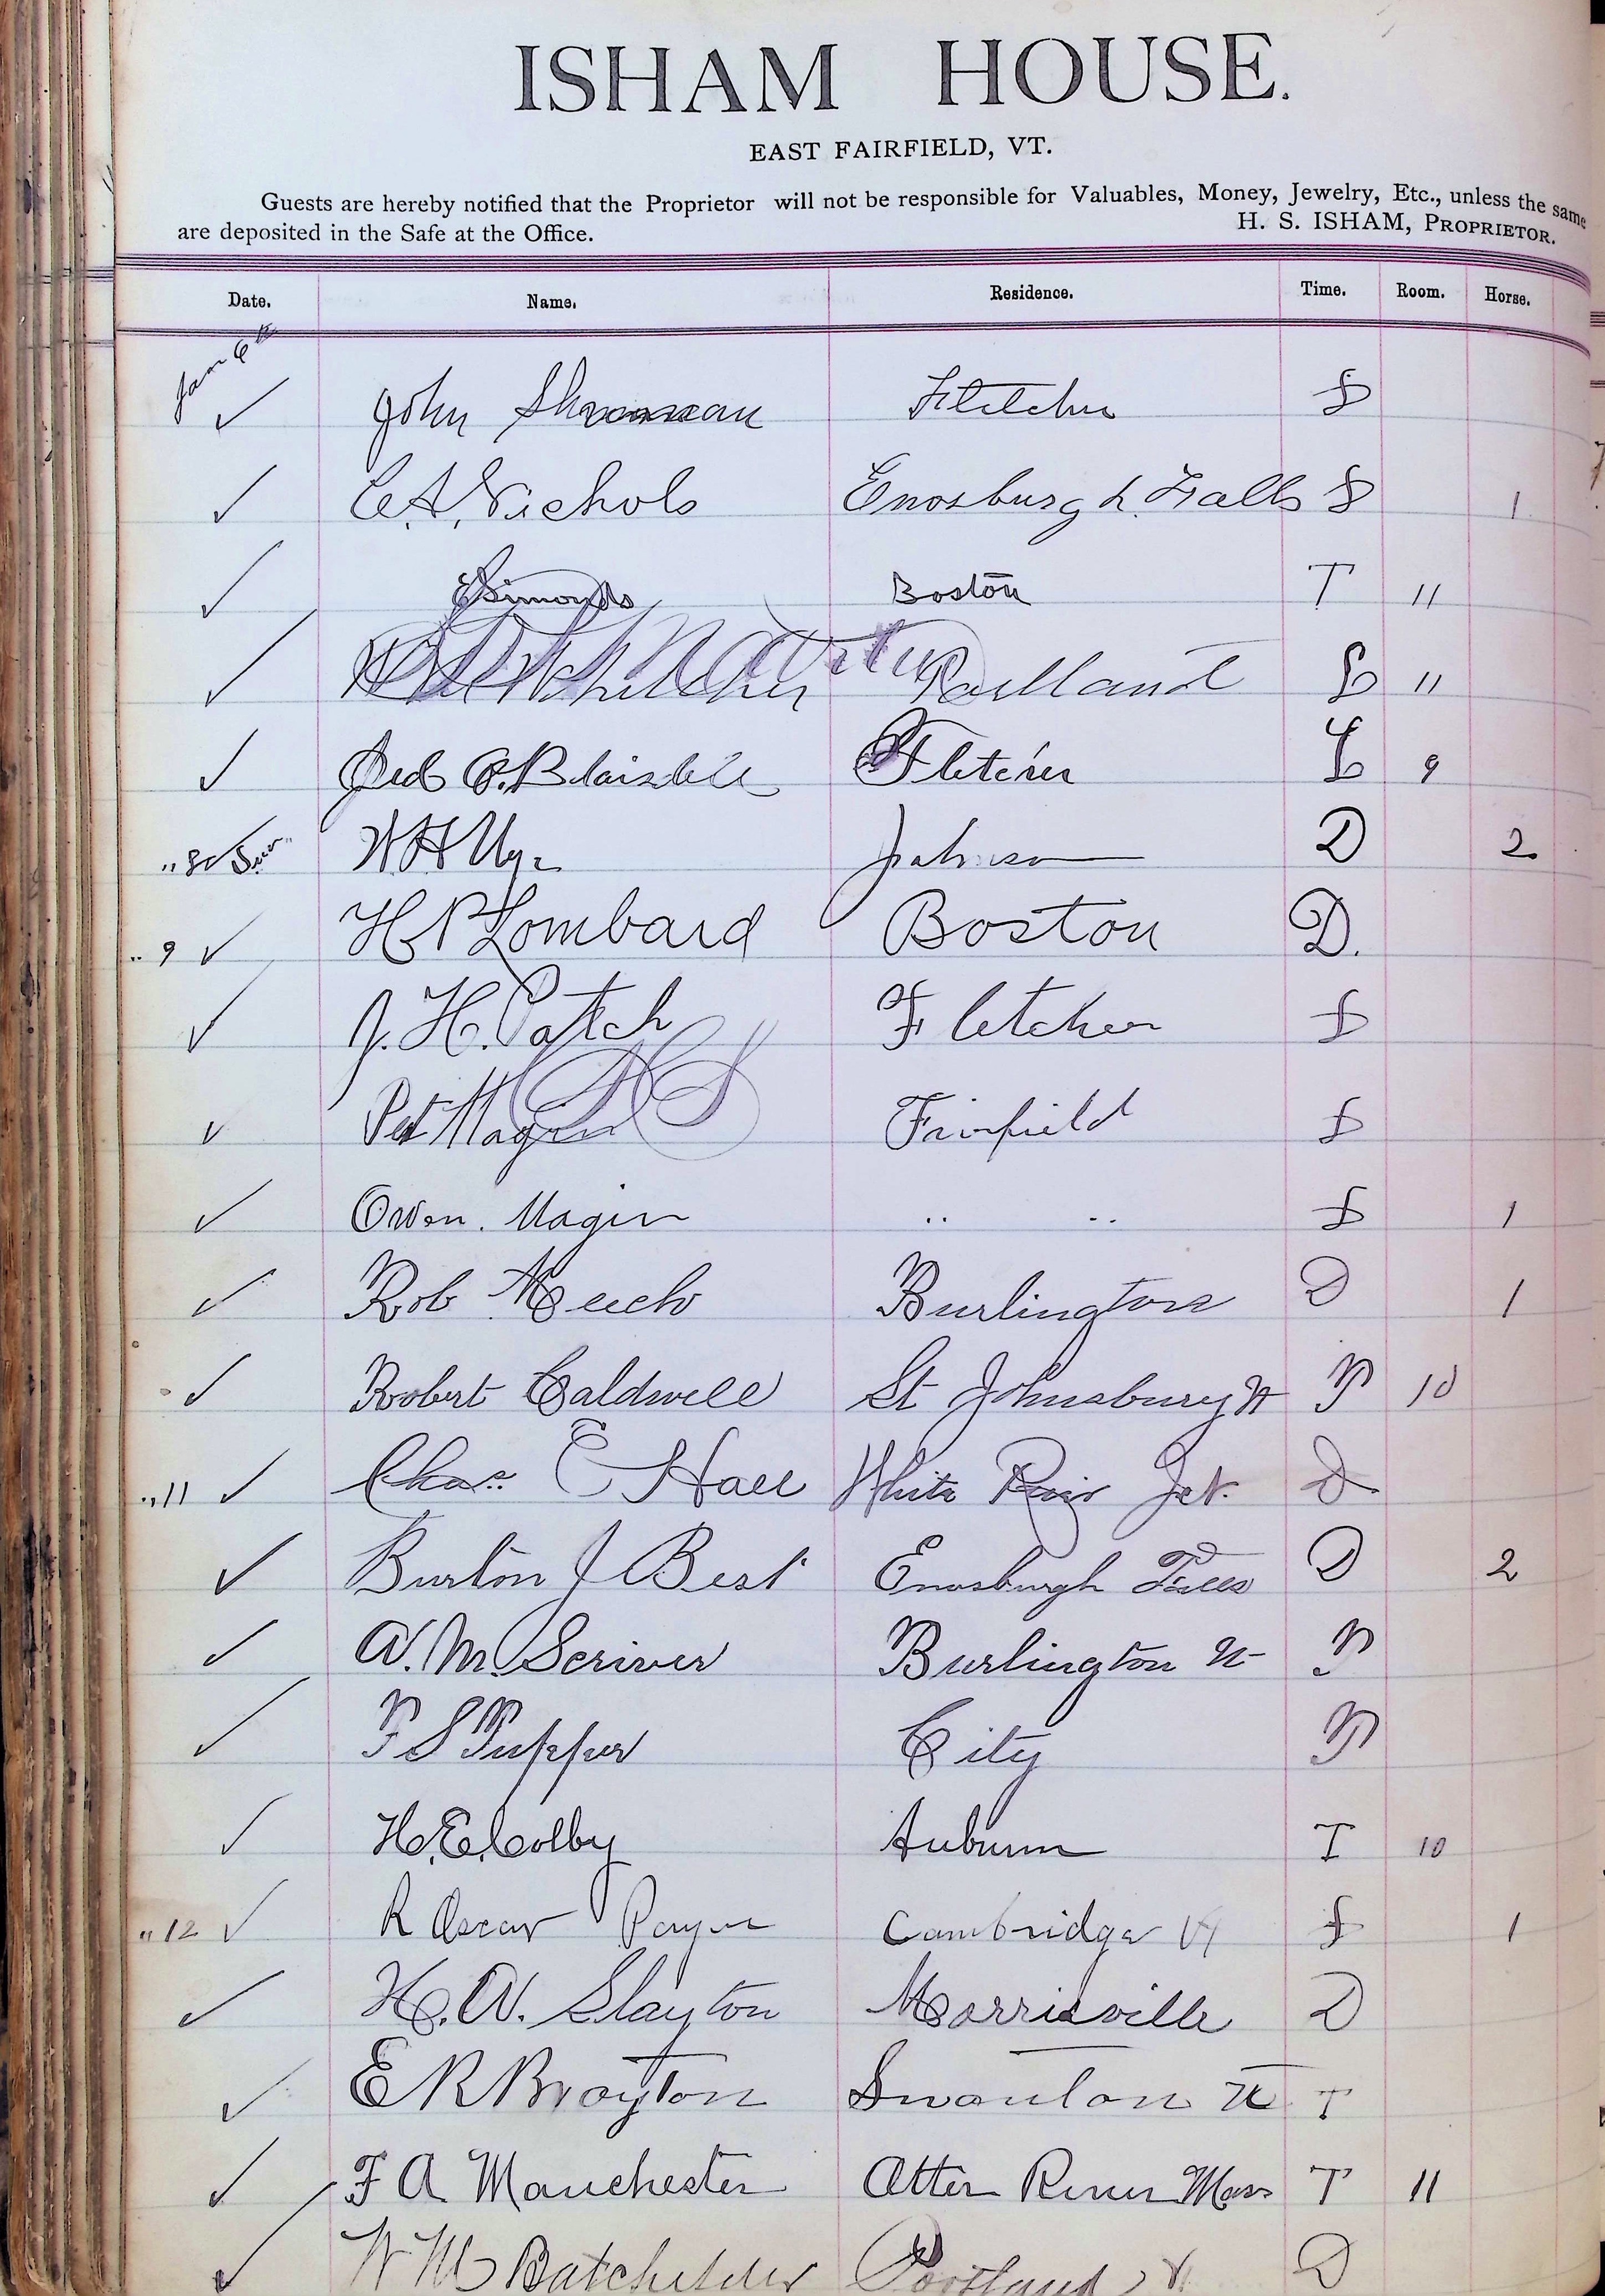 ISHAM HOUSE.
EAST FAIRFIELD, VT.
Guests are hereby notified that the Proprietor will not be responsible for Valuables, Money, Jewelry, Etc., unless the same
are deposited in the Safe at the Office.
H. S. ISHAM, PROPRIETOR.
Date. Name. Residence. Time. Room. Horse.
Jan 6th
✓ John Fletcher S
✓ C.A. Nichols Enosburgh Falls S 1
✓ Simonds Boston T 11
✓ L 11
✓ Blaisdell Fletcher L 9
" 8 ✓ W H Johnson D 2
" 9 ✓ H P Lombard Boston D.
✓ J. H. Patch Fletcher S
✓ Pat Magin Fairfield S
✓ Owen. Magin " " S 1
✓ Rob Burlington D 1
✓ Robert Caldwell St Johnsbury Vt P 10
" 11 ✓ Chas. E Hall White River Jct. D
✓ Burton J Best Enosburgh Falls D 2
✓ A. M. Scriver Burlington Vt P
✓ F S Tupper City P
✓ H. E. Colby Auburn T 10
" 12 ✓ R Oscar Cambridge Vt S 1
✓ H. A. Slayton Morrisville D
✓ E R Brayton Swanton Vt T
✓ F A Manchester Otter River Mass T 11
✓ W M Batchelder Portland D